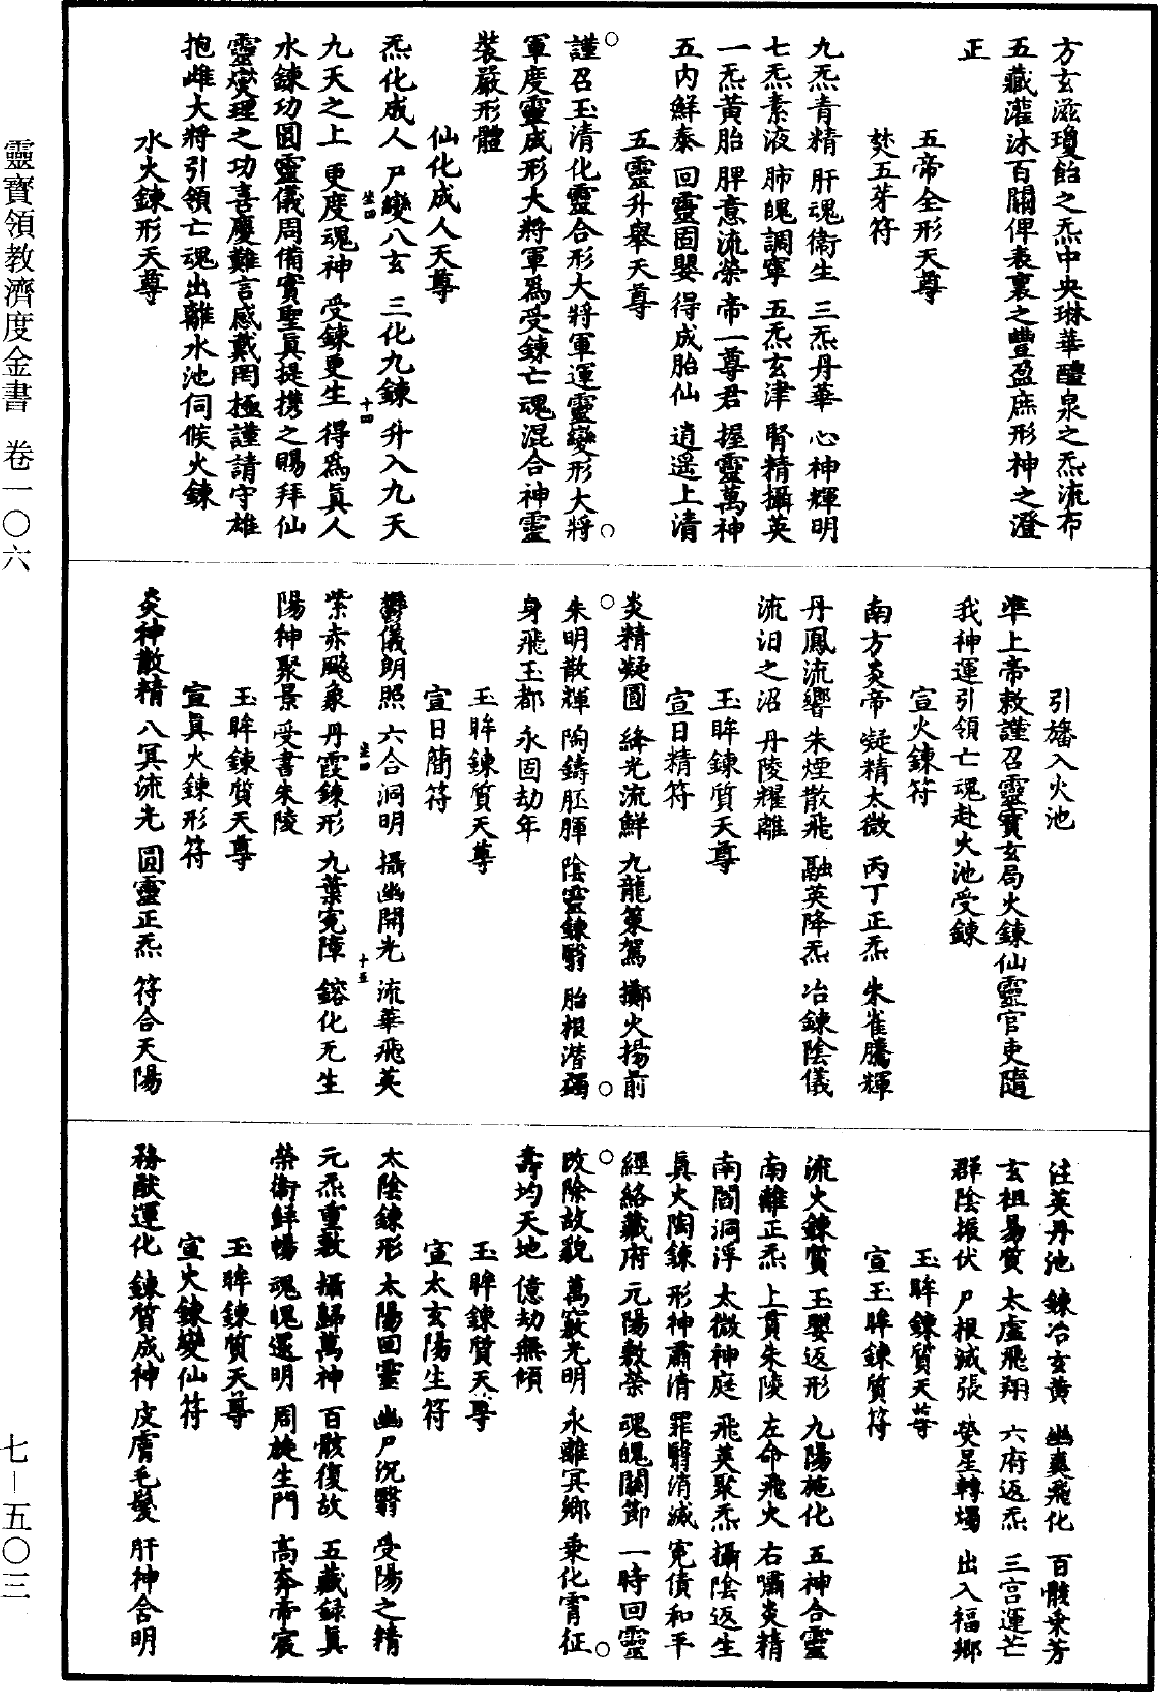 方玄滋瓊飴之炁中央琳華醴泉之炁流布
五藏灌沐百關俾表裏之豐盈庶形神之澄
正
五帝全形天尊
焚五芽符
九炁青精 肝魂衞生 三炁丹華 心神輝明
七炁素液 肺魄調寧 五炁玄津 腎精攝英
一炁黃胎 脾意流榮 帝一尊君 握靈萬神
五內鮮泰 回靈固嬰 得成胎仙 逍遥上清
五靈升舉天尊
○謹召玉清化靈合形大將軍運靈變形大將○
軍度靈成形大將軍爲受鍊亡魂混合神靈
裝嚴形體
仙化成人天尊
炁化成人 尸變八玄 三化九鍊 升入九天
坐四 十四
九天之上 更度魂神 受鍊更生 得爲眞人
水鍊功圓靈儀周備實聖眞提携之賜拜仙
靈燮理之功喜慶難言感戴罔極謹請守雄
抱雌大將引領亡魂出離水池伺候火鍊
水火鍊形天尊
引旛入火池
準上帝敕謹召靈寶玄局火鍊仙靈官吏隨
我神運引領亡魂赴火池受鍊
宣火鍊符
南方炎帝 凝精太微 丙丁正炁 朱雀騰輝
丹鳳流響 朱煙散飛 融英降炁 冶鍊陰儀
流汨之沼 丹陵耀離
玉眸鍊質天尊
宣日精符
炎精凝圓 絳光流鮮 九龍策駕 擲火揚前
○朱明散輝 陶鑄胚腪 陰靈鍊翳 胎根潛蠲○
身飛玉都 永固劫年
玉眸鍊質天尊
宣日簡符
鬱儀朗照 六合洞明 攝幽開光 流華飛英
坐四 十五
紫赤飈象 丹霞鍊形 九葉寃障 鎔化无生
陽神聚景 受書朱陵
玉眸鍊質天尊
宣眞火鍊形符
炎神散精 八冥流光 圓靈正炁 符合天陽
注英丹池 鍊冶玄黃 幽爽飛化 百骸乗芳
玄祖易質 太虛飛翔 六府返炁 三宮運芒
群陰振伏 尸根滅張 熒星轉燭 出入福鄉
玉眸鍊質天尊
宣玉眸鍊質符
流火鍊質 玉嬰返形 九陽施化 五神合靈
南離正炁 上貫朱陵 左命飛火 右嘯炎精
南閻洞浮 太微神庭 飛英聚炁 攝陰返生
眞火陶鍊 形神肅清 罪翳消滅 寃債和平
經絡藏府 元陽敷榮 魂魄關節 一時回靈
○改除故貌 萬竅光明 永離冥鄉 乗化霄征○
壽均天地 億劫無傾
玉眸鍊質天尊
宣太玄陽生符
太陰鍊形 太陽回靈 幽尸沉翳 受陽之精
元炁重敷 攝歸萬神 百骸復故 五藏録眞
榮衞鮮暢 魂魄還明 周旋生門 高奔帝宸
玉眸鍊質天尊
宣火鍊變仙符
務猷運化 鍊質成神 皮膚毛髮 肝神含明
靈寶領教濟度金書 卷一〇六
七—五〇三